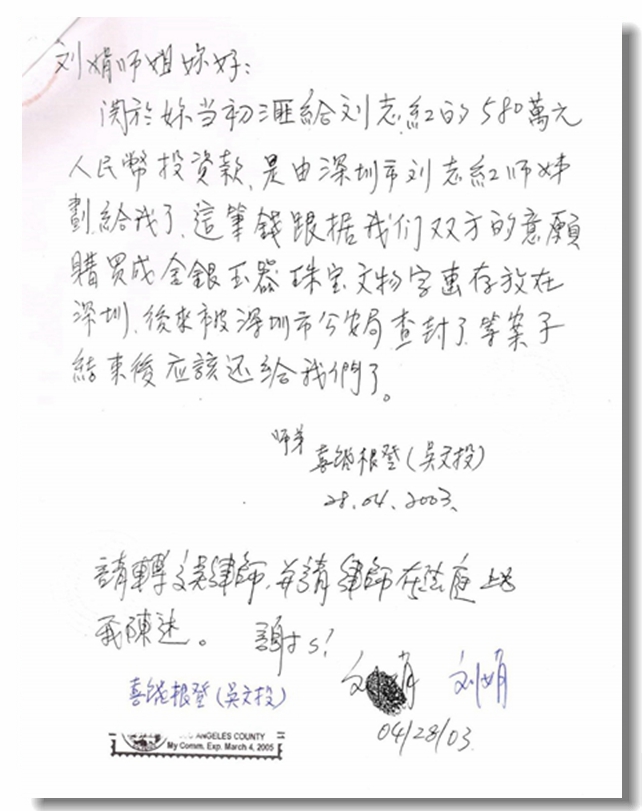 刘娟师姐妳好:
関於妳当初滙給刘志红的580萬元
人民幣投資款,是由深圳市刘志红师姊
劃給我了,這筆錢跟据我们双方的意願
購買成金銀玉器珠宝文物字畫存放在
深圳,後來被深圳市公安局查封了,等案子
結束後应該还給我們了。
师弟
喜饶根登(吳文投)
28.04.2003.
請轉交律師,并請律師在法庭上为
我陳述。 謝谢!
刘娟 刘娟
喜饶根登(吳文投)
04/28/03
ANGELES COUNTY
My Comm. Exp. March 4, 2005